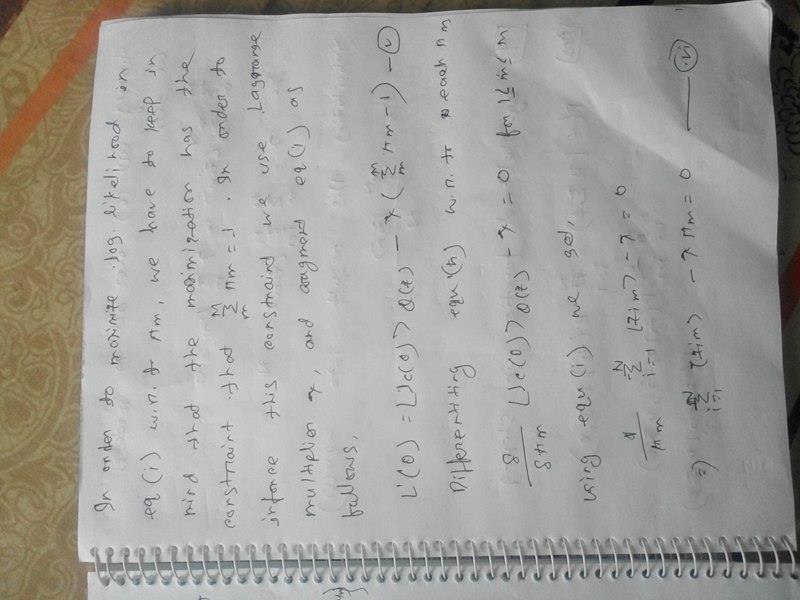 In order to maximize log likelihood in
eq (i) w.r. to πm, we have to keep in
mind that the maximization has the
constraint that M Σ m πm = 1. In order to
inforce this constraint we use Lagrange
multiplier λ, and augment eq (i) as
follows,
L'(θ) = <lc(θ)>Q(z) - λ ( M Σ m πm - 1) - (v)
Differentiting equ'(n) w.r. to each πm
δ/δπm <lc(θ)>Q(z) - λ = 0 for 1 ≤ m ≤ m
using equ (i) we get,
1/πm N Σ i=1 <zim> - λ = 0
⇒) N Σ i=1 <zim> - λ πm = 0 — (vi)